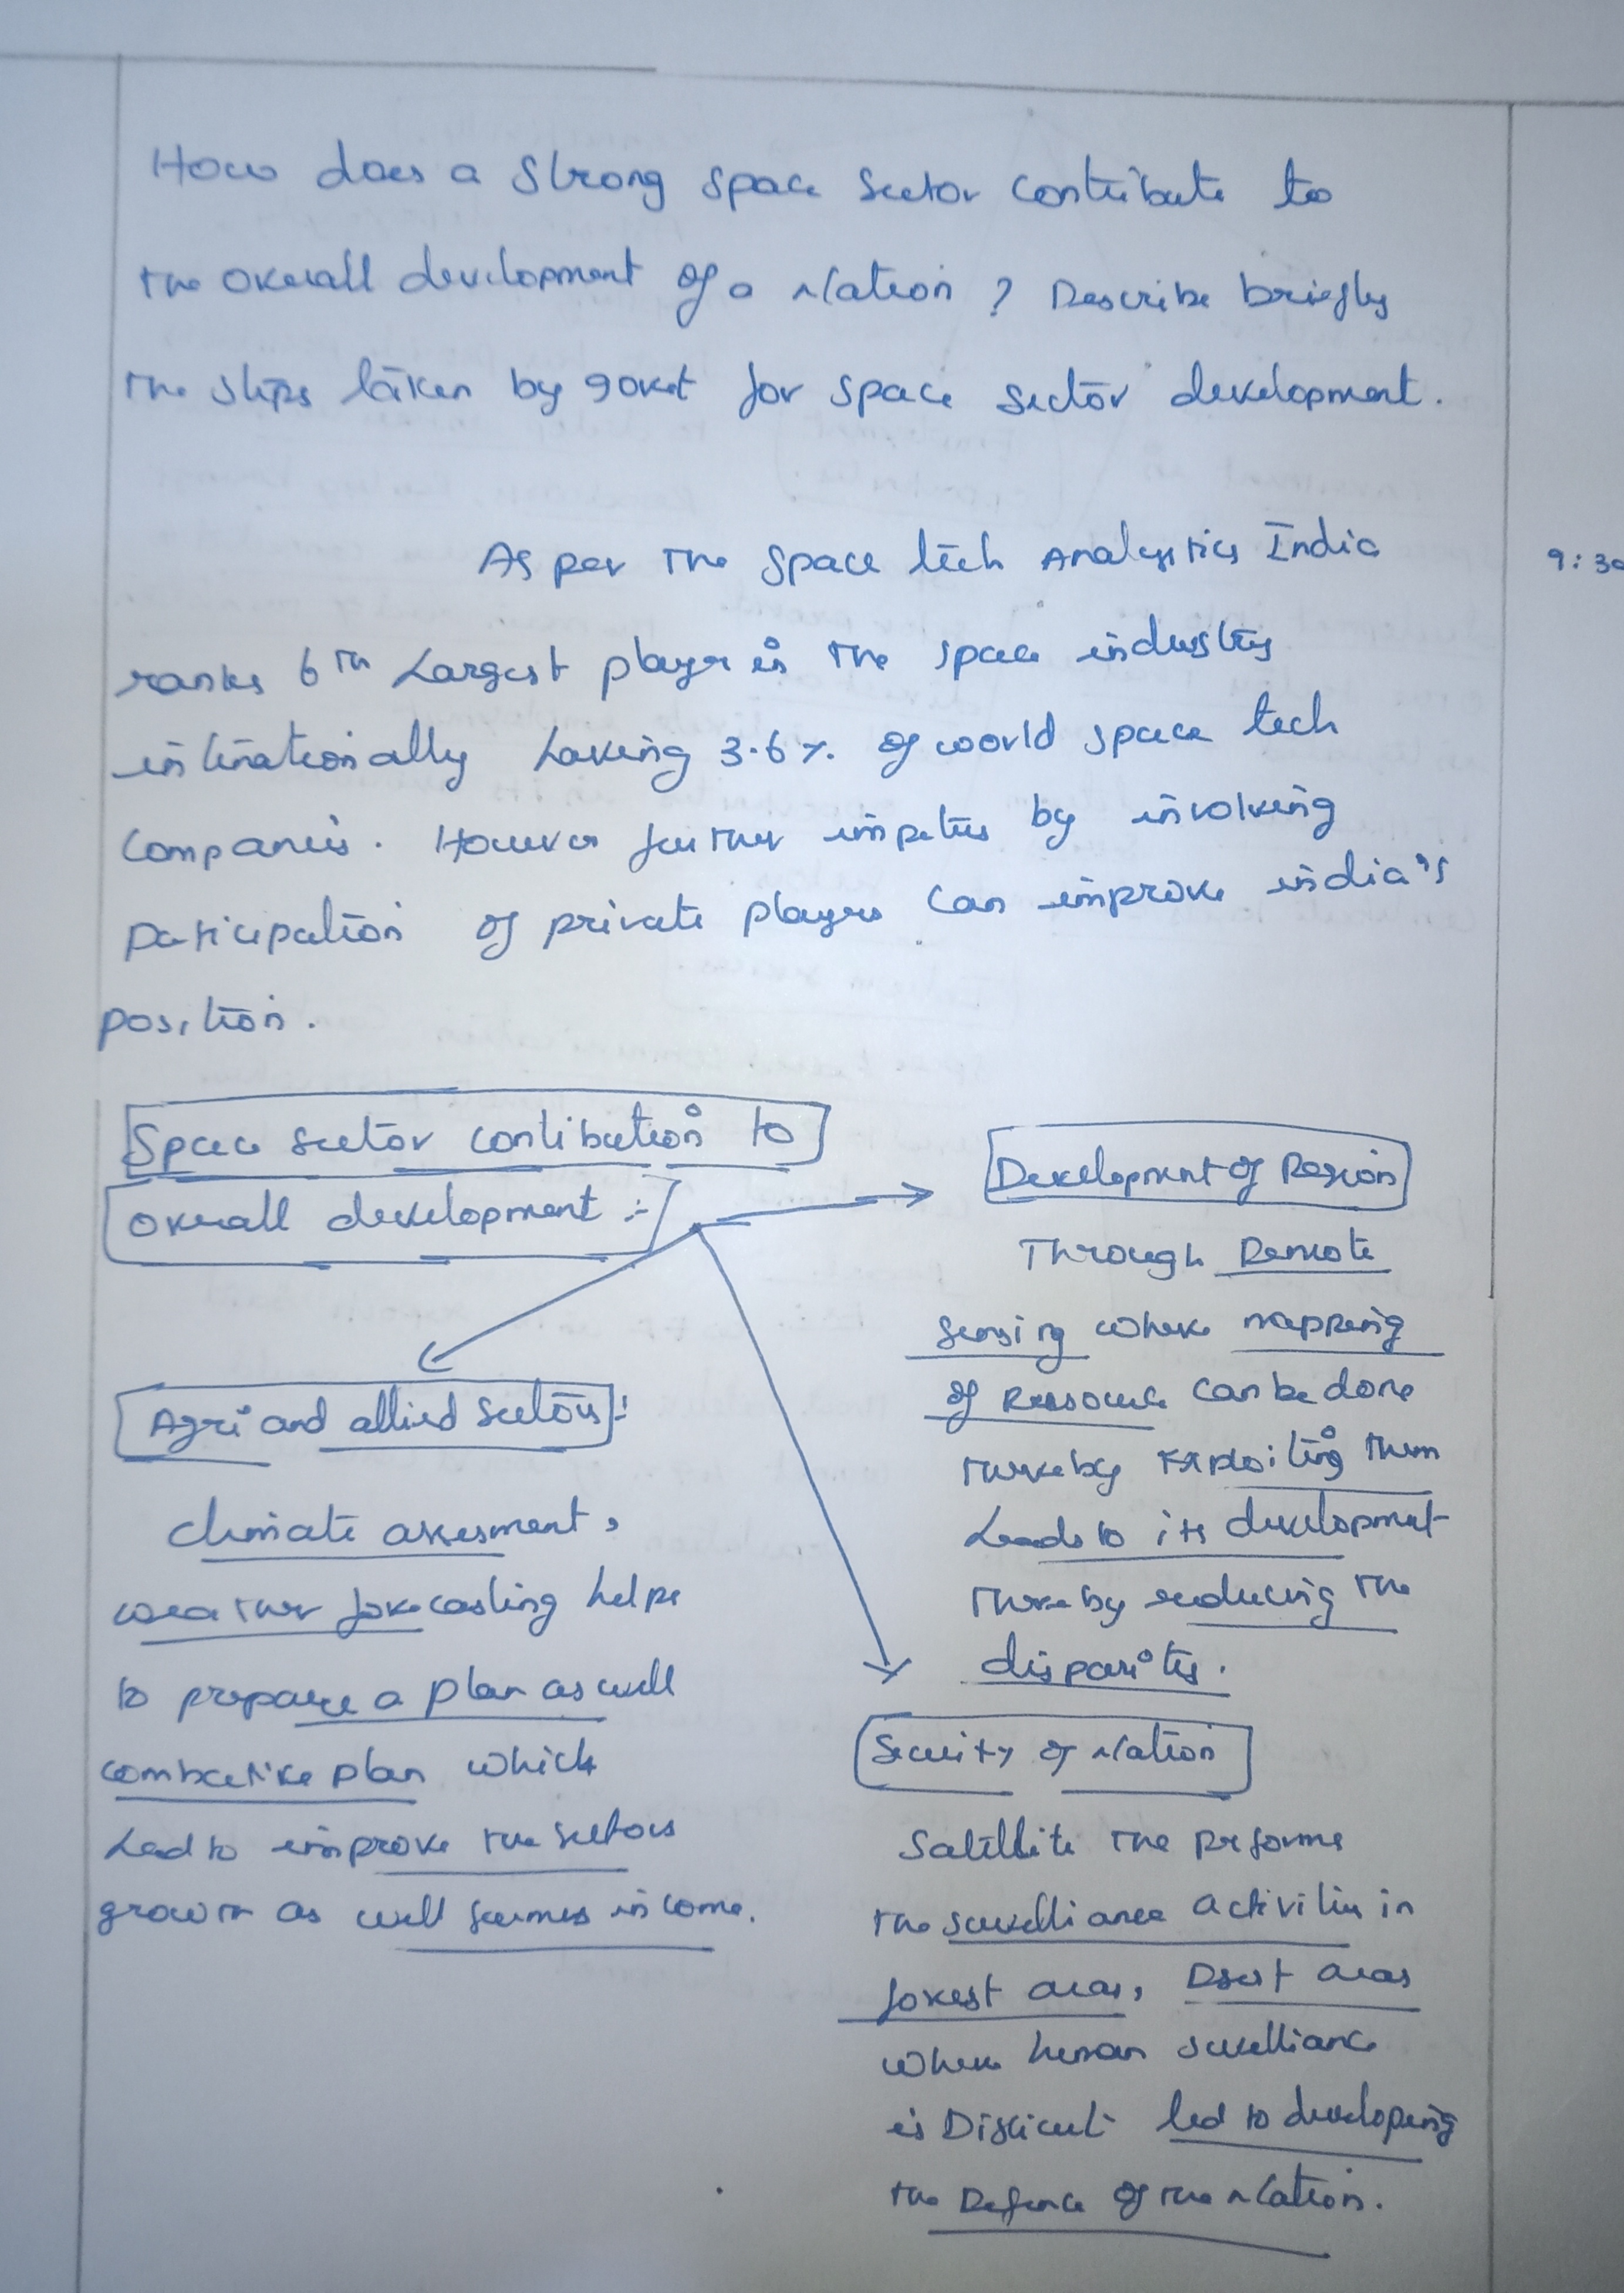 How does a strong space sector contribute to
the overall development of a Nation ? Describe briefly
the steps taken by govt for space sector development.
As per the Space tech Analystics India
9:30
ranks 6th Largest player in the space industry
internationally having 3.6% of world space tech
Companies. However further impetus by involving
participation of private players can improve india's
position.
Space sector contibution to
Overall development :-
Agri and allied sectors :
Climate assesment,
weather forecasting helps
to prepare a plan as well
combative plan which
Lead to improve the sectors
growth as well farmers income.
Development of Region
Through Remote
sensing where mapping
of Ressource can be done
thereby Exploiting them
Leads to its development
thereby reducing the
disparity.
Security of Nation
Satellite the performs
the survelliance activities in
forest areas, Desert areas
where human survelliance
is Difficult led to developing
the Defence of the Nation.